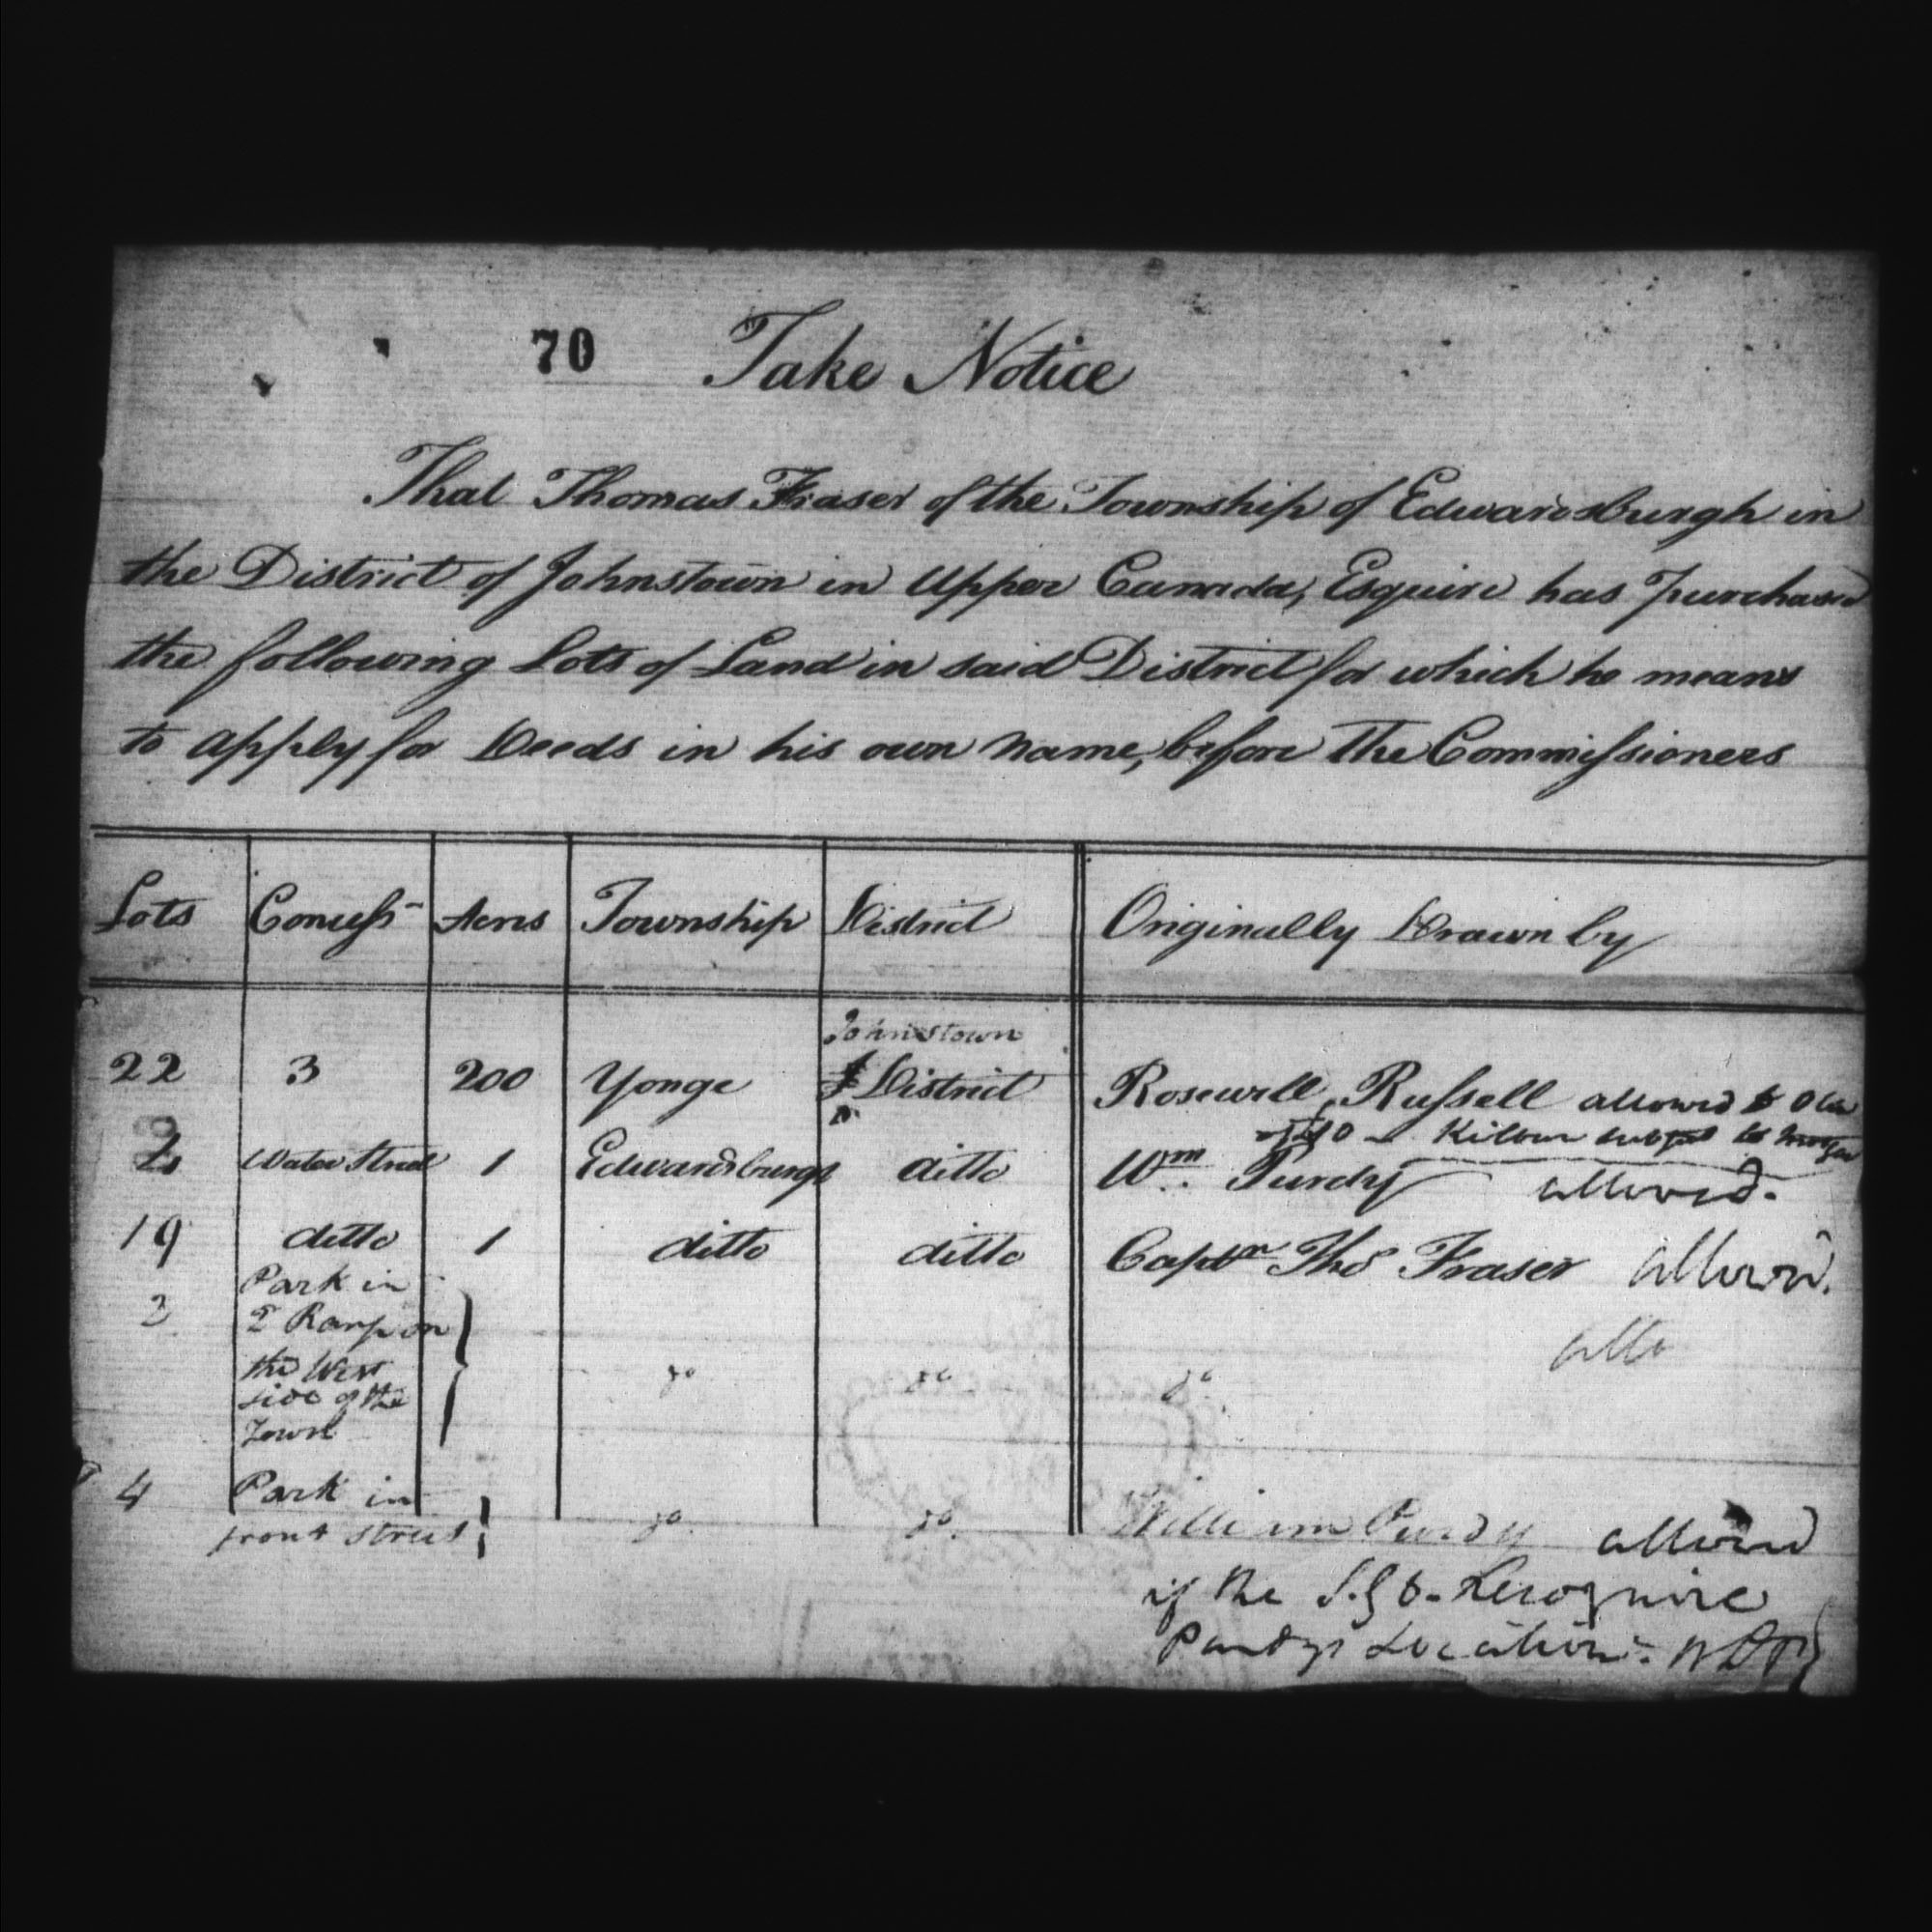 70 Take Notice
That Thomas Fraser of the Township of Edwardsburgh in
the District of Johnstown in Upper Canada, Esquire has Purchased
the following Lots of Land in said District for which he means
to apply for Deeds in his own Name, before the Commissioners
Lots Concess Acres Township District Originally Drawn by
Johnstown
22 3 200 Yonge District Rosewell Russell allowed to
Kilburn subject to
2 Water Street 1 Edwardsburgh ditto Wm Purdy allowed.
19 ditto 1 ditto ditto Captn Thos Fraser allowed.
Park in
2 Range on
the West do do do allo
side of the
Town
4 Park in
front street do do William Purdy allowed
if the S. G. Recognize
Purdys Location.